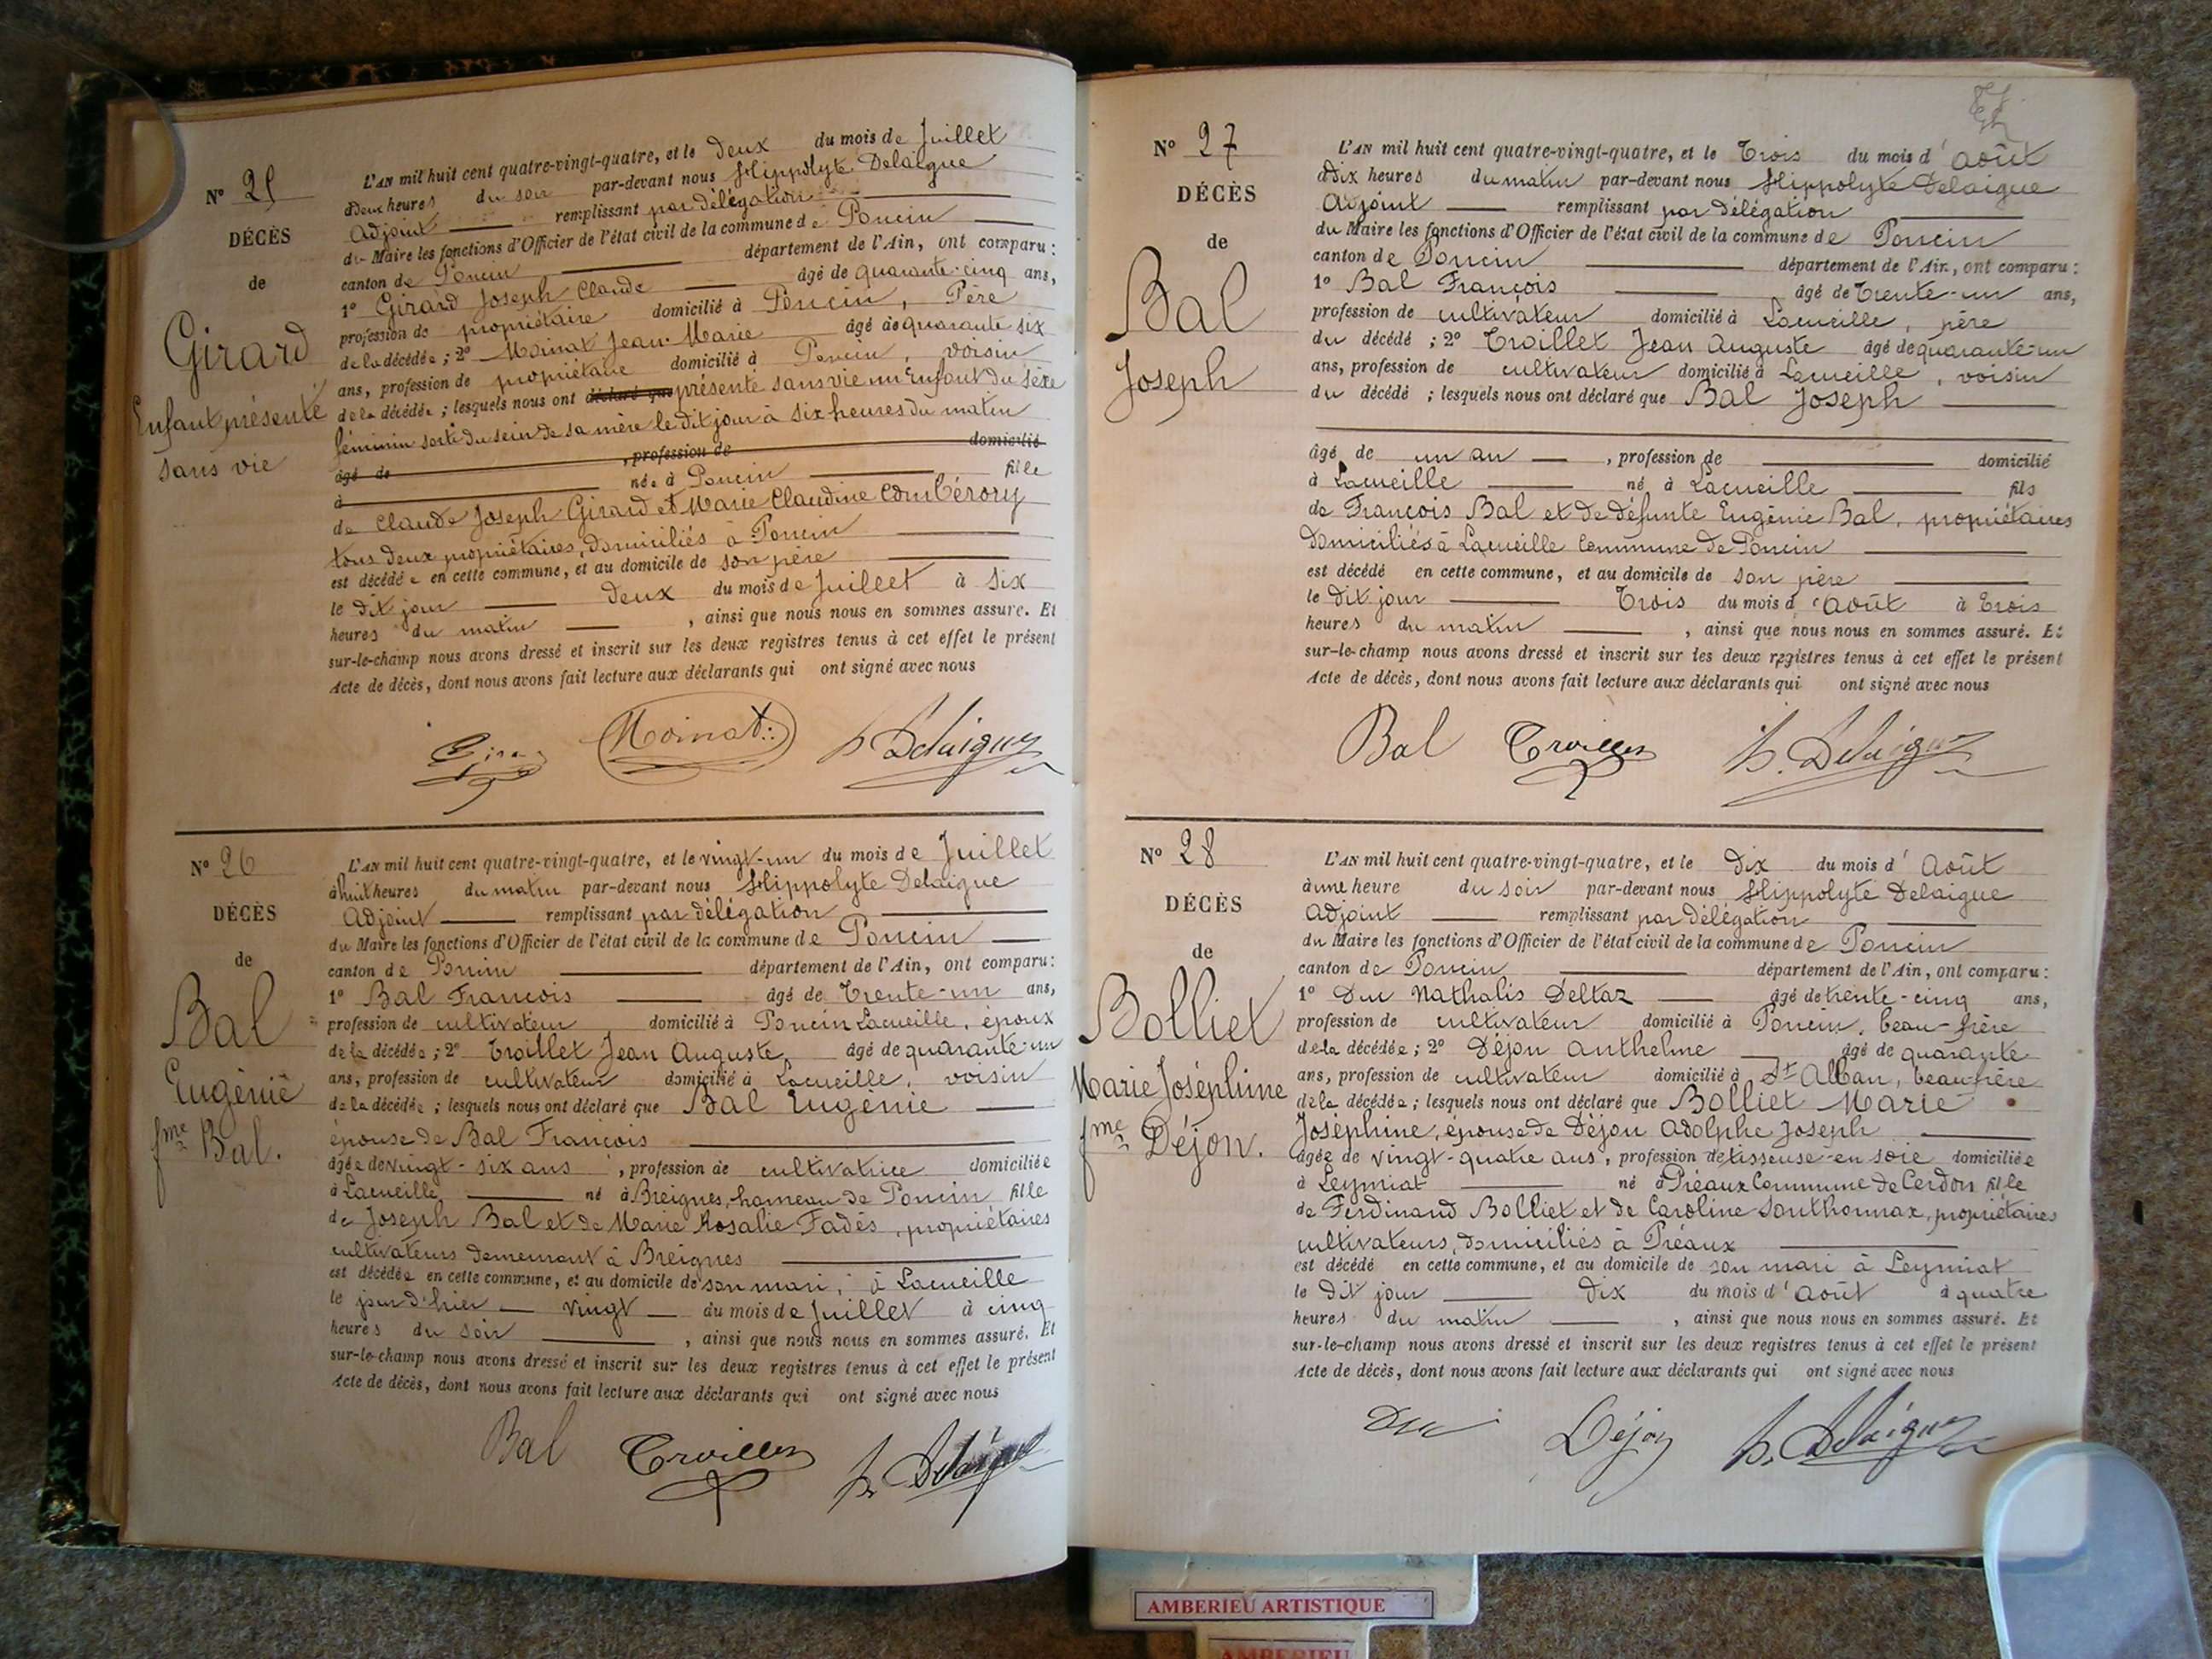 Nº 25
DÉCÈS
de
Girard
Enfant présenté
sans vie
L'AN mil huit cent quatre-vingt-quatre, et le Deux du mois de Juillet
à deux heures du soir par-devant nous Hippolyte Delaigue
Adjoint remplissant par délégation
du Maire les fonctions d'Officier de l'état civil de la commune de Poncin
canton de Poncin département de l'Ain, ont comparu :
1º Girard Joseph Claude âgé de quarante-cinq ans,
profession de propriétaire domicilié à Poncin, Père
de la décédée ; 2º Moinat Jean-Marie âgé de quarante six
ans, profession de propriétaire domicilié à Poncin, voisin
de la décédée ; lesquels nous ont déclaré que présenté sans vie un Enfant du sexe
féminin sorti du sein de sa mère le dit jour à six heures du matin
âgé de , profession de domicilié
à née à Poncin fille
de Claude Joseph Girard et Marie Claudine
tous deux propriétaires, domiciliés à Poncin
est décédée en cette commune, et au domicile de son père
le dit jour deux du mois de Juillet à six
heures du matin , ainsi que nous nous en sommes assuré. Et
sur-le-champ nous avons dressé et inscrit sur les deux registres tenus à cet effet le présent
Acte de décès, dont nous avons fait lecture aux déclarants qui ont signé avec nous
Moinat h Delaigue
Nº 26
DÉCÈS
de
Bal
Eugénie
fme Bal.
L'AN mil huit cent quatre-vingt-quatre, et le vingt-un du mois de Juillet
à huit heures du matin par-devant nous Hippolyte Delaigue
Adjoint remplissant par délégation
du Maire les fonctions d'Officier de l'état civil de la commune de Poncin
canton de Poncin département de l'Ain, ont comparu :
1º Bal François âgé de Trente-un ans,
profession de cultivateur, domicilié à Poncin Lacueille, époux
de la décédée ; 2º Troillet Jean Auguste, âgé de quarante-un
ans, profession de cultivateur domicilié à Lacueille, voisin
de la décédée ; lesquels nous ont déclaré que Bal Eugénie
épouse de Bal François
âgée de vingt-six ans, profession de cultivatrice domiciliée
à Lacueille né à Breignes, hameau de Poncin fille
de Joseph Bal et de Marie Rosalie Fadès, propriétaires
cultivateurs demeurant à Breignes
est décédée en cette commune, et au domicile de son mari, à Lacueille
le jour d'hier vingt du mois de Juillet à cinq
heures du soir , ainsi que nous nous en sommes assuré. Et
sur-le-champ nous avons dressé et inscrit sur les deux registres tenus à cet effet le présent
Acte de décès, dont nous avons fait lecture aux déclarants qui ont signé avec nous
Bal Troillet h. Delaigue
Nº 27
DÉCÈS
de
Bal
Joseph
L'AN mil huit cent quatre-vingt-quatre, et le Trois du mois d'Août
à dix heures du matin par-devant nous Hippolyte Delaigue
Adjoint remplissant par délégation
du Maire les fonctions d'Officier de l'état civil de la commune de Poncin
canton de Poncin département de l'Ain, ont comparu :
1º Bal François âgé de Trente-un ans,
profession de cultivateur domicilié à Lacueille, père
du décédé ; 2º Troillet Jean Auguste âgé de quarante-un
ans, profession de cultivateur domicilié à Lacueille, voisin
du décédé ; lesquels nous ont déclaré que Bal Joseph
âgé de un an , profession de domicilié
à Lacueille né à Lacueille fils
de François Bal et de défunte Eugénie Bal, propriétaires
domiciliés à Lacueille Commune de Poncin
est décédé en cette commune, et au domicile de son père
le dit jour Trois du mois d'Août à Trois
heures du matin , ainsi que nous nous en sommes assuré. Et
sur-le-champ nous avons dressé et inscrit sur les deux registres tenus à cet effet le présent
Acte de décès, dont nous avons fait lecture aux déclarants qui ont signé avec nous
Bal Troillet h. Delaigue
Nº 28
DÉCÈS
de
Bolliet
Marie Joséphine
fme Déjon.
L'AN mil huit cent quatre-vingt-quatre, et le Dix du mois d'Août
à une heure du soir par-devant nous Hippolyte Delaigue
Adjoint remplissant par délégation
du Maire les fonctions d'Officier de l'état civil de la commune de Poncin
canton de Poncin département de l'Ain, ont comparu :
1º Duc Nathalis Deltaz âgé de trente-cinq ans,
profession de cultivateur domicilié à Poncin, beau-frère
de la décédée ; 2º Déjon Anthelme âgé de quarante
ans, profession de cultivateur domicilié à St Alban, beau frère
de la décédée ; lesquels nous ont déclaré que Bolliet Marie
Joséphine, épouse de Déjon Adolphe Joseph
âgée de vingt-quatre ans, profession de tisseuse en soie domiciliée
à Leymiat né à Préaux Commune de Cerdon fille
de Ferdinand Bolliet et de Caroline Southonnax, propriétaires
cultivateurs, domiciliés à Préaux
est décédé en cette commune, et au domicile de son mari à Leymiat
le dit jour Dix du mois d'Août à quatre
heures du matin , ainsi que nous nous en sommes assuré. Et
sur-le-champ nous avons dressé et inscrit sur les deux registres tenus à cet effet le présent
Acte de décès, dont nous avons fait lecture aux déclarants qui ont signé avec nous
Duc Déjon h. Delaigue
AMBERIEU ARTISTIQUE
AMBERIEU